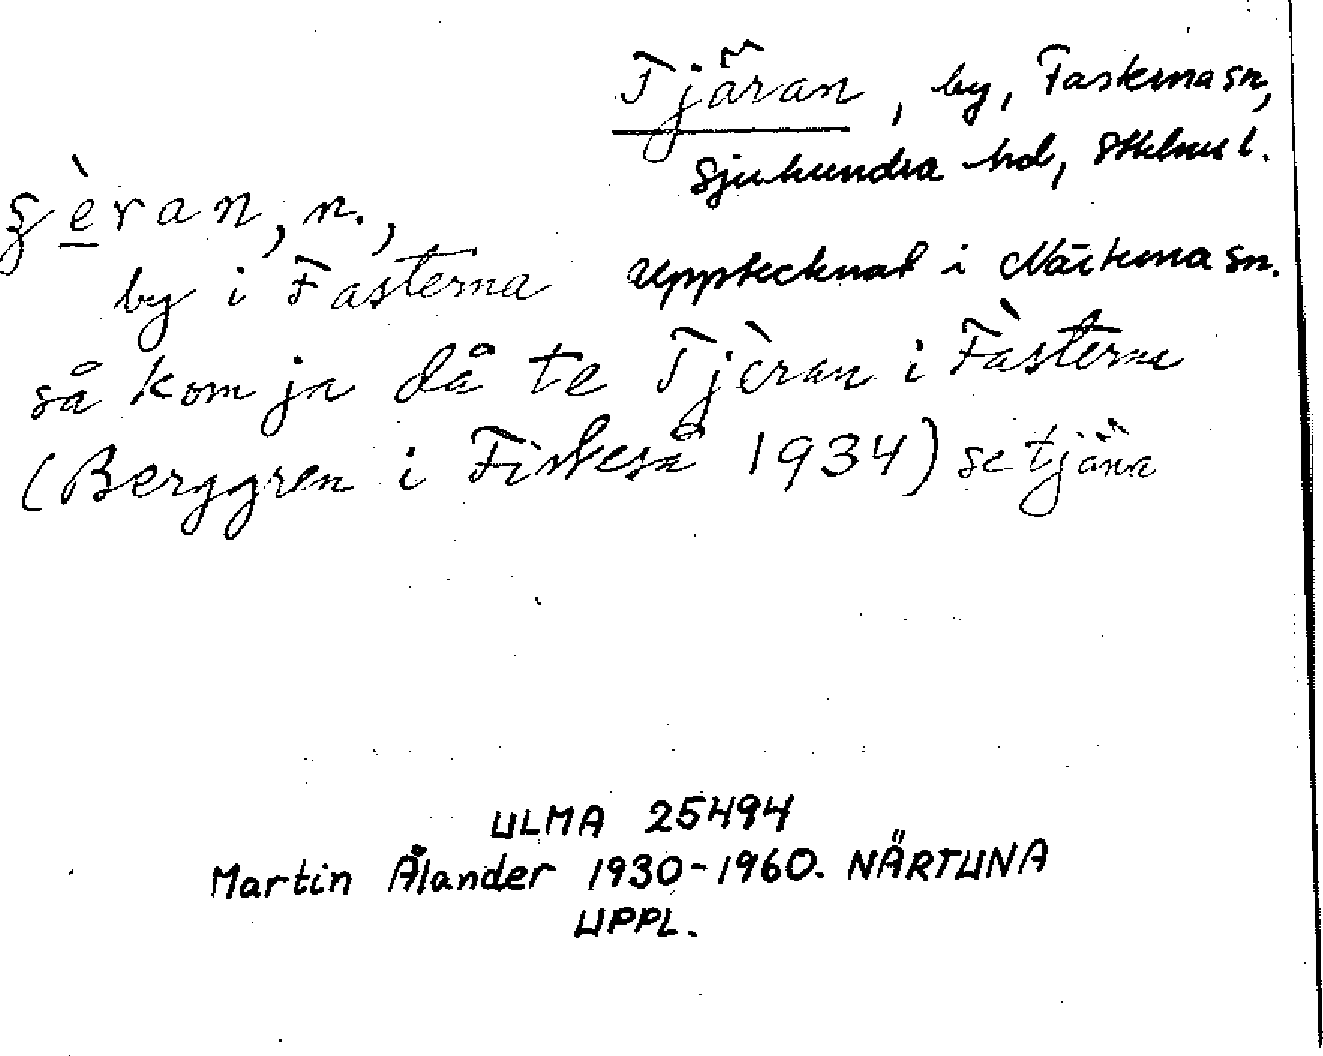 Tjäran, by, Fasterna sn,
Sjuhundra hd, Sthlms l.
èran, n.,
by i Fasterna Upptecknat i Närtuna sn.
så kom ja då te Tjèran i Fàsterna
(Berggren i Fiskeså 1934) se tjära
ULMA 25494
Martin Ålander 1930-1960. NÄRTUNA
UPPL.